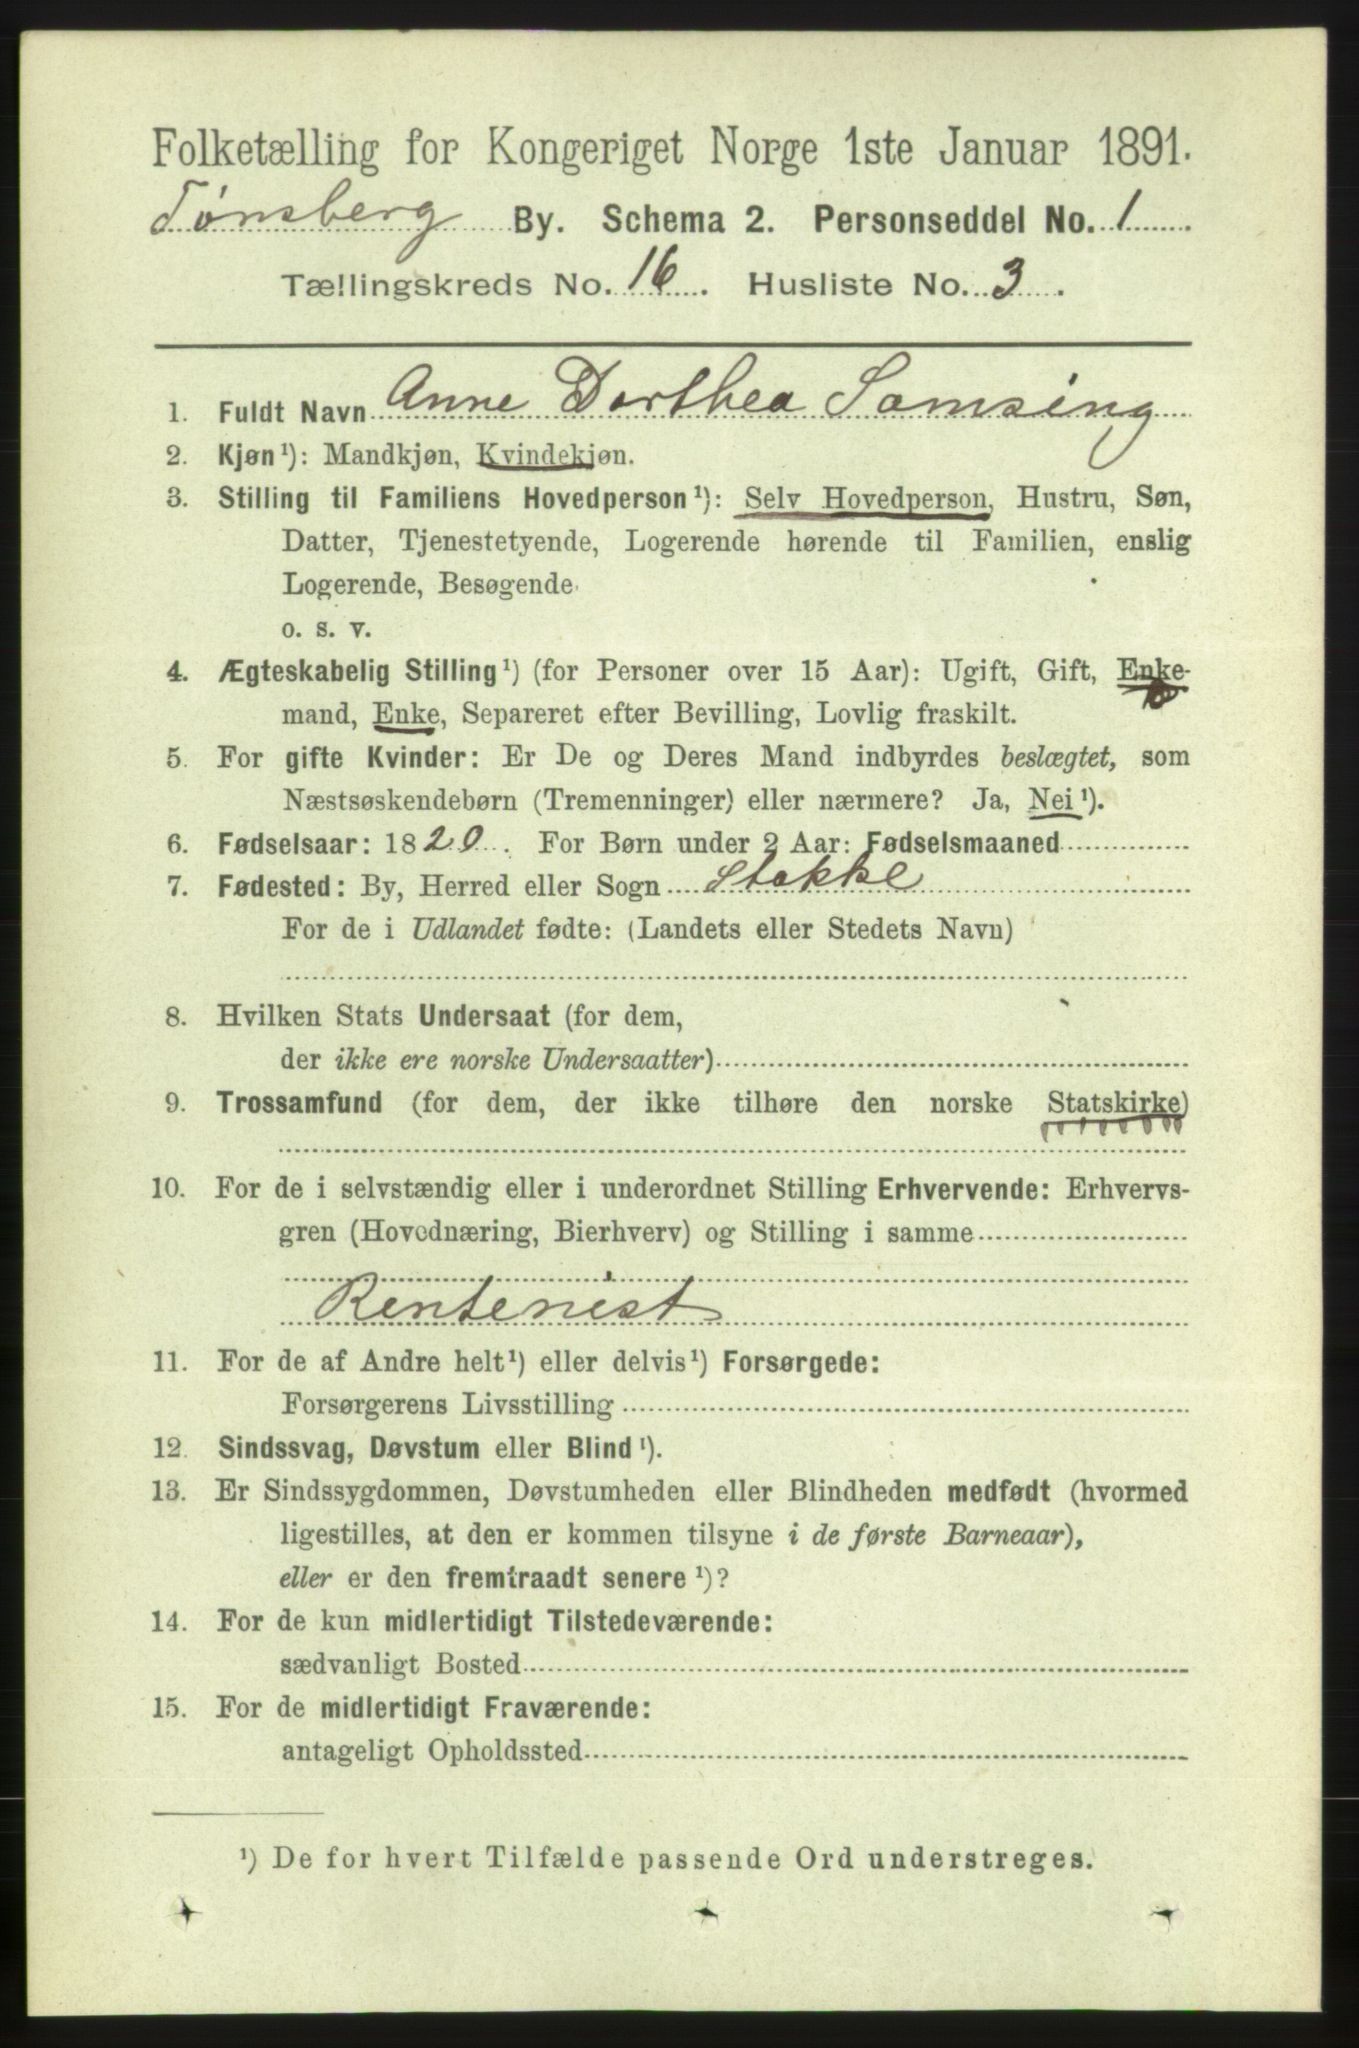 Folketælling for Kongeriget Norge 1ste Januar 1891.
Tønsberg By. Schema 2. Personseddel No. 1
Tællingskreds No. 16. Husliste No. 3.
1. Fuldt Navn Anne Dorthea Samsing
2. Kjøn¹): Mandkjøn, Kvindekjøn.
3. Stilling til Familiens Hovedperson¹): Selv Hovedperson, Hustru, Søn,
Datter, Tjenestetyende, Logerende hørende til Familien, enslig
Logerende, Besøgende
o. s. v.
4. Ægteskabelig Stilling¹) (for Personer over 15 Aar): Ugift, Gift, Enke-
mand, Enke, Separeret efter Bevilling, Lovlig fraskilt.
5. For gifte Kvinder: Er De og Deres Mand indbyrdes beslægtet, som
Næstsøskendebørn (Tremenninger) eller nærmere? Ja, Nei¹).
6. Fødselsaar: 1820. For Børn under 2 Aar: Fødselsmaaned
7. Fødested: By, Herred eller Sogn Stokke
For de i Udlandet fødte: (Landets eller Stedets Navn)
8. Hvilken Stats Undersaat (for dem,
der ikke ere norske Undersaatter)
9. Trossamfund (for dem, der ikke tilhøre den norske Statskirke)
10. For de i selvstændig eller i underordnet Stilling Erhvervende: Erhvervs-
gren (Hovednæring, Bierhverv) og Stilling i samme
Rentenist
11. For de af Andre helt¹) eller delvis¹) Forsørgede:
Forsørgerens Livsstilling
12. Sindssvag, Døvstum eller Blind¹).
13. Er Sindssygdommen, Døvstumheden eller Blindheden medfødt (hvormed
ligestilles, at den er kommen tilsyne i de første Barneaar),
eller er den fremtraadt senere¹)?
14. For de kun midlertidigt Tilstedeværende:
sædvanligt Bosted
15. For de midlertidigt Fraværende:
antageligt Opholdssted
¹) De for hvert Tilfælde passende Ord understreges.